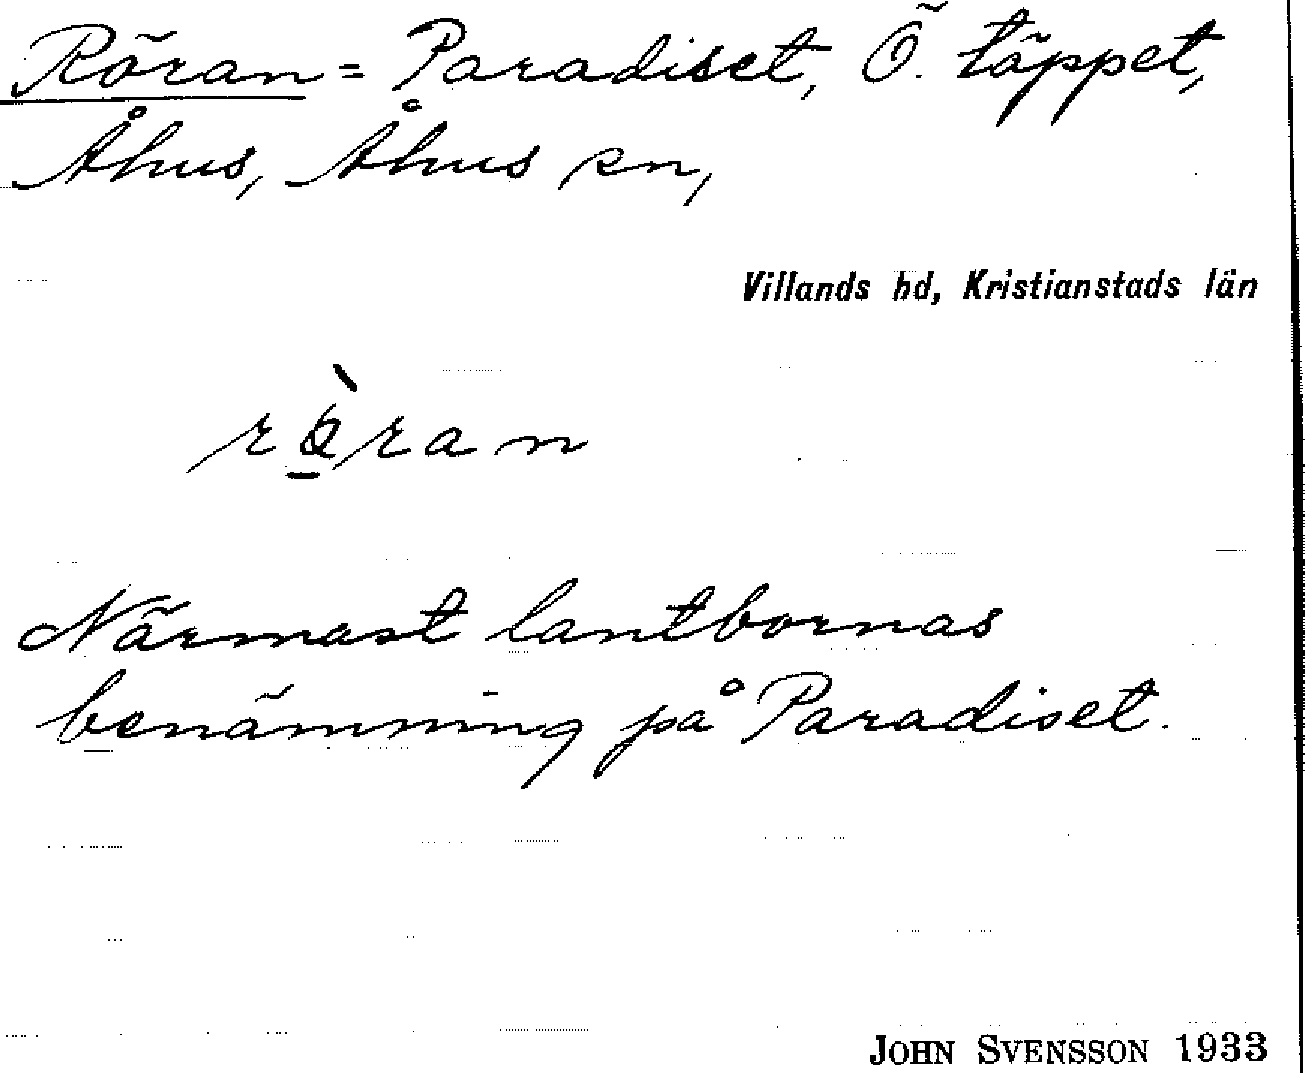 Röran = Paradiset, Ö. täppet,
Åhus, Åhus sn,
Villands hd, Kristianstads län
rø̱̀ran
Närmast lantbornas
benämning på Paradiset.
JOHN SVENSSON 1933